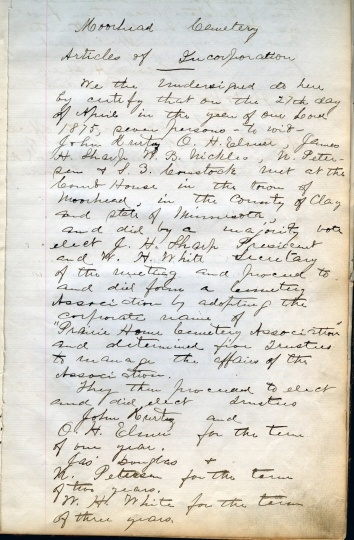 Moorhead Cemetery
Articles of Incorporation
We the undersigned do here
by certify that on the 27th day
of April in the year of our Lord
1875, seven persons - to wit -
John Kurtz, O. H. Elmer, James
H. Sharp, W. B. Nickles, N. Peter-
sen & S. G. Comstock met at the
Court House, in the town of
Moorhead, in the County of Clay
and state of Minnesota,
and did by a majority vote
elect J. H. Sharp President
and W. H. White Secretary
of the meeting and proceed to
and did form a Cemetery
Association by adopting the
corporate name of
"Prairie Home Cemetery Association"
and determined five Trustees
to manage the affairs of the
Association.
They then proceeded to elect
and did elect trustees
John Kurtz and
O. H. Elmer for the term
of one year.
Jas Douglas &
N. Petersen for the term
of two years.
W. H. White for the term
of three years.